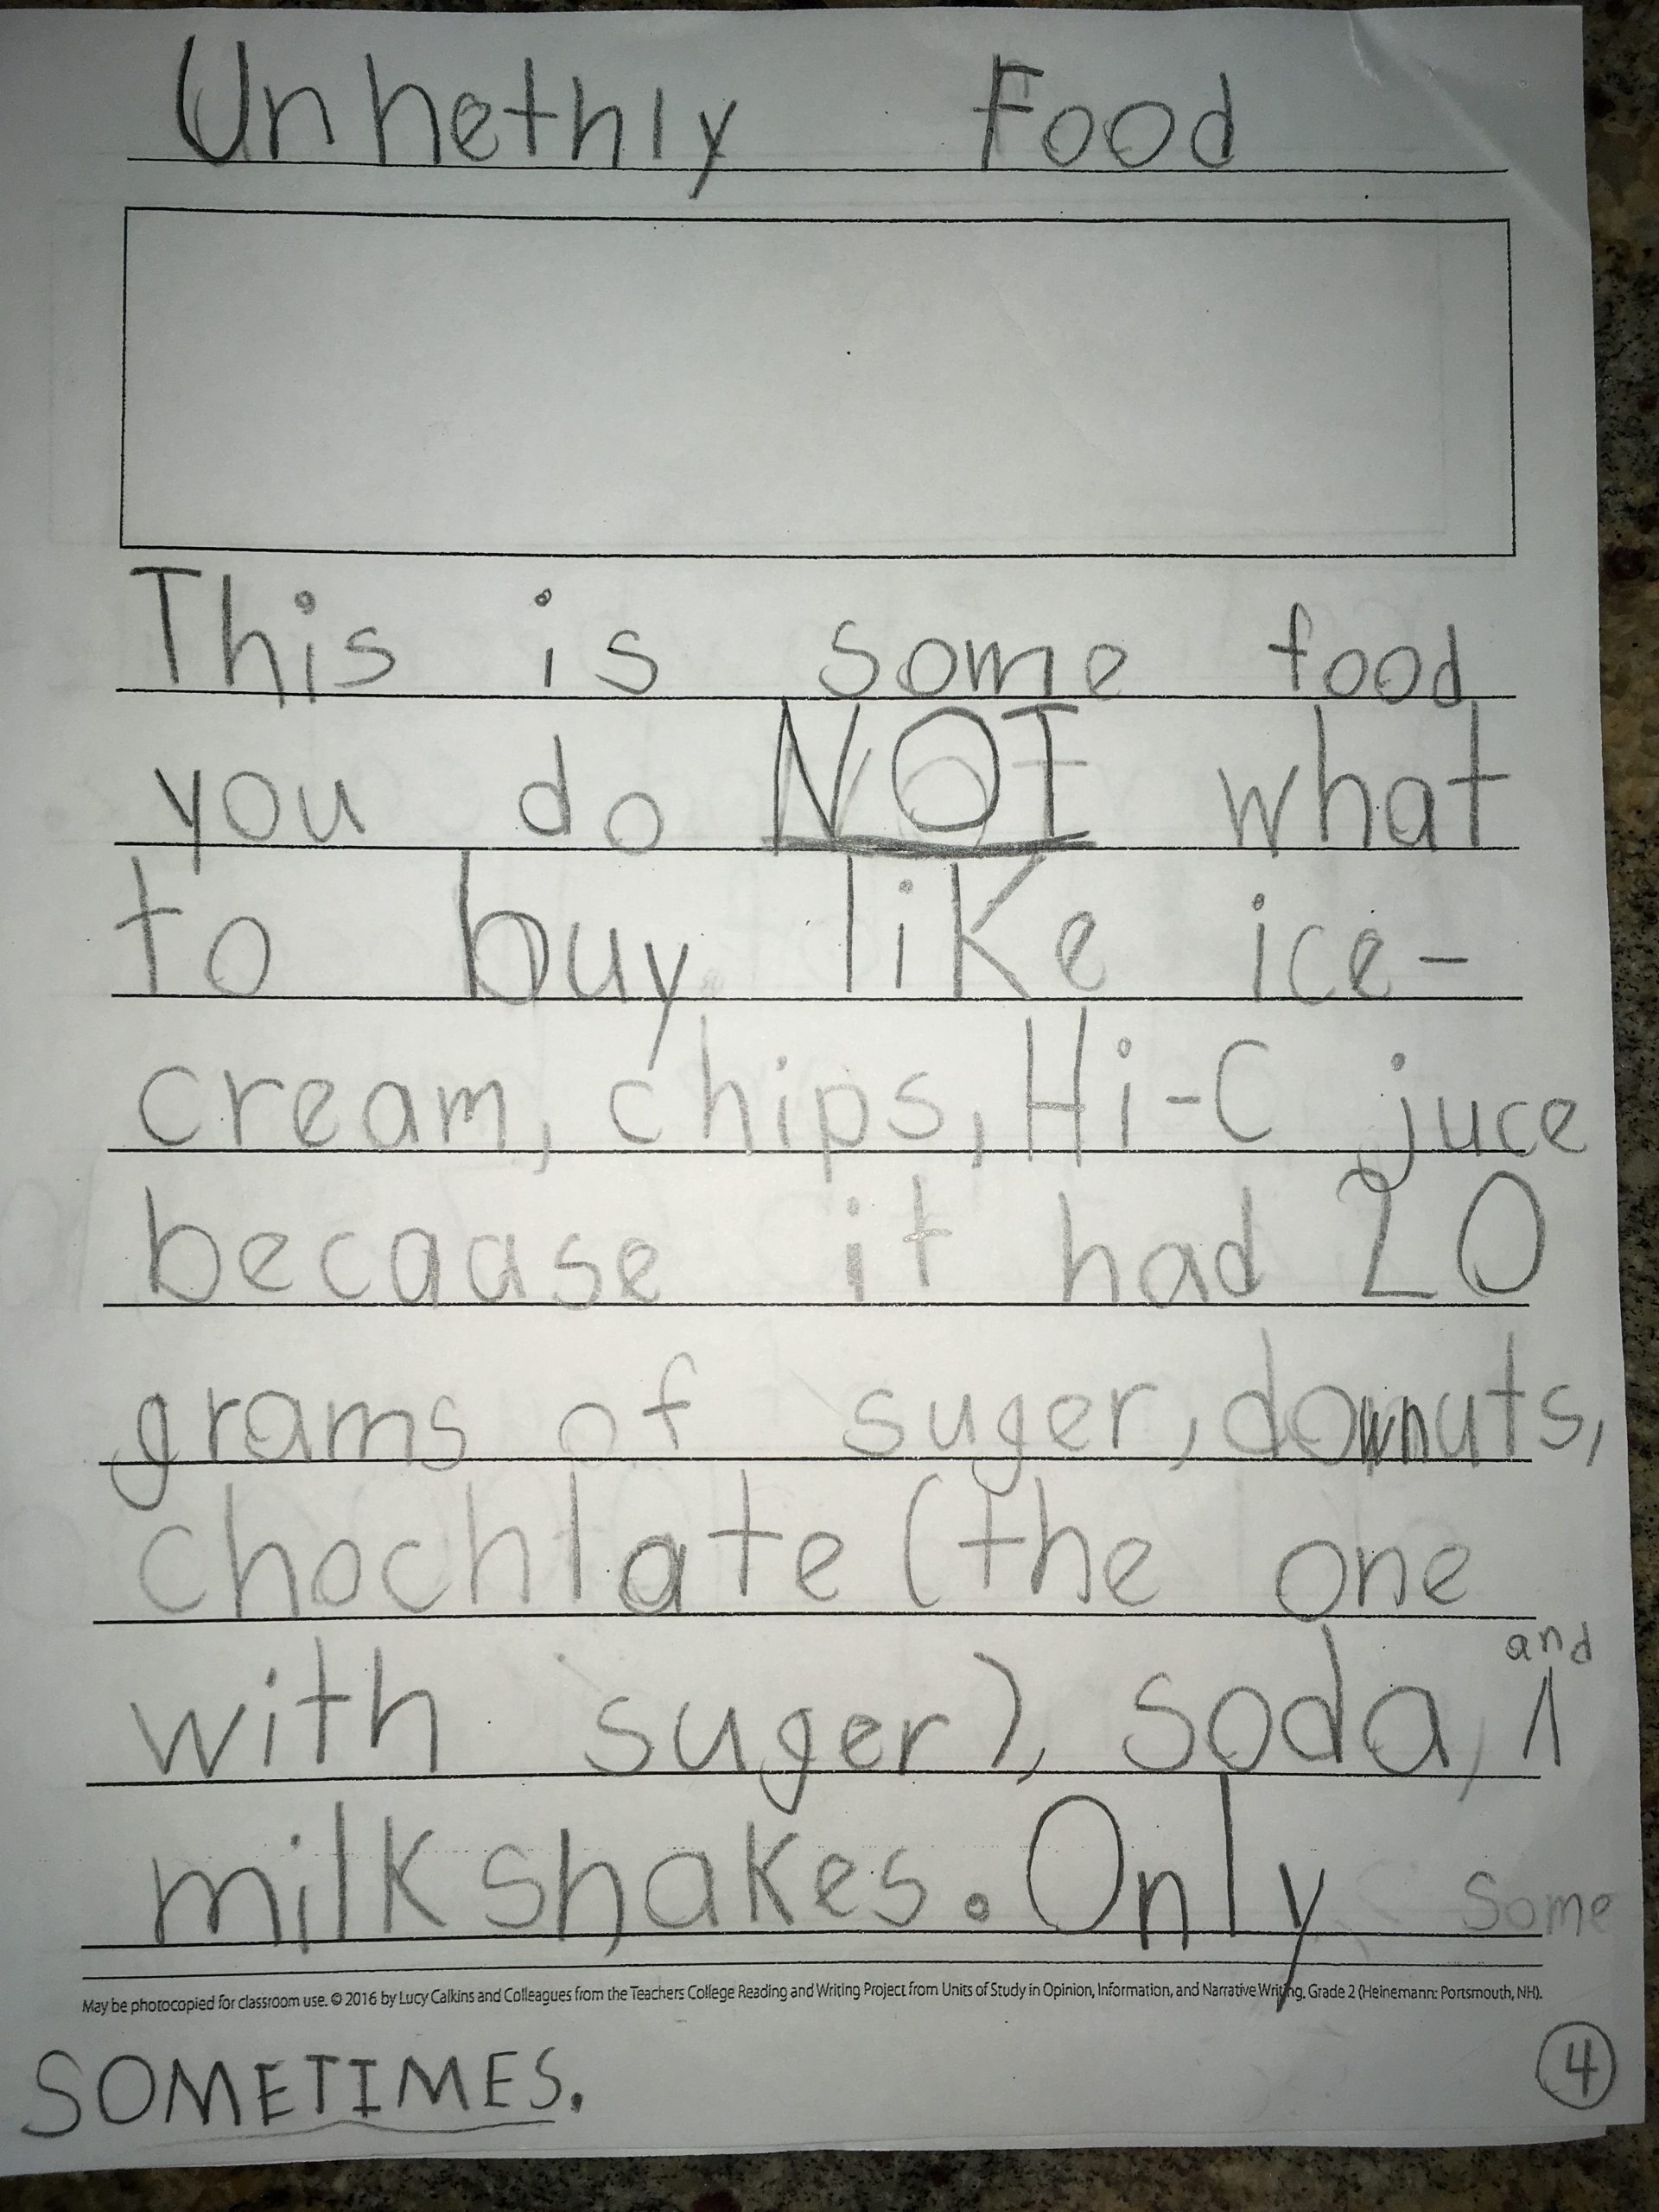 Unhethly Food
This is some food
you do NOT what
to buy like ice-
cream, chips, Hi-C juce
becaase it had 20
grams of suger, downuts,
chochlate (the one
with suger), soda, and
milkshakes. Only some
May be photocopied for classroom use. © 2016 by Lucy Calkins and Colleagues from the Teachers College Reading and Writing Project from Units of Study in Opinion, Information, and Narrative Writing, Grade 2 (Heinemann: Portsmouth, NH).
SOMETIMES.
4